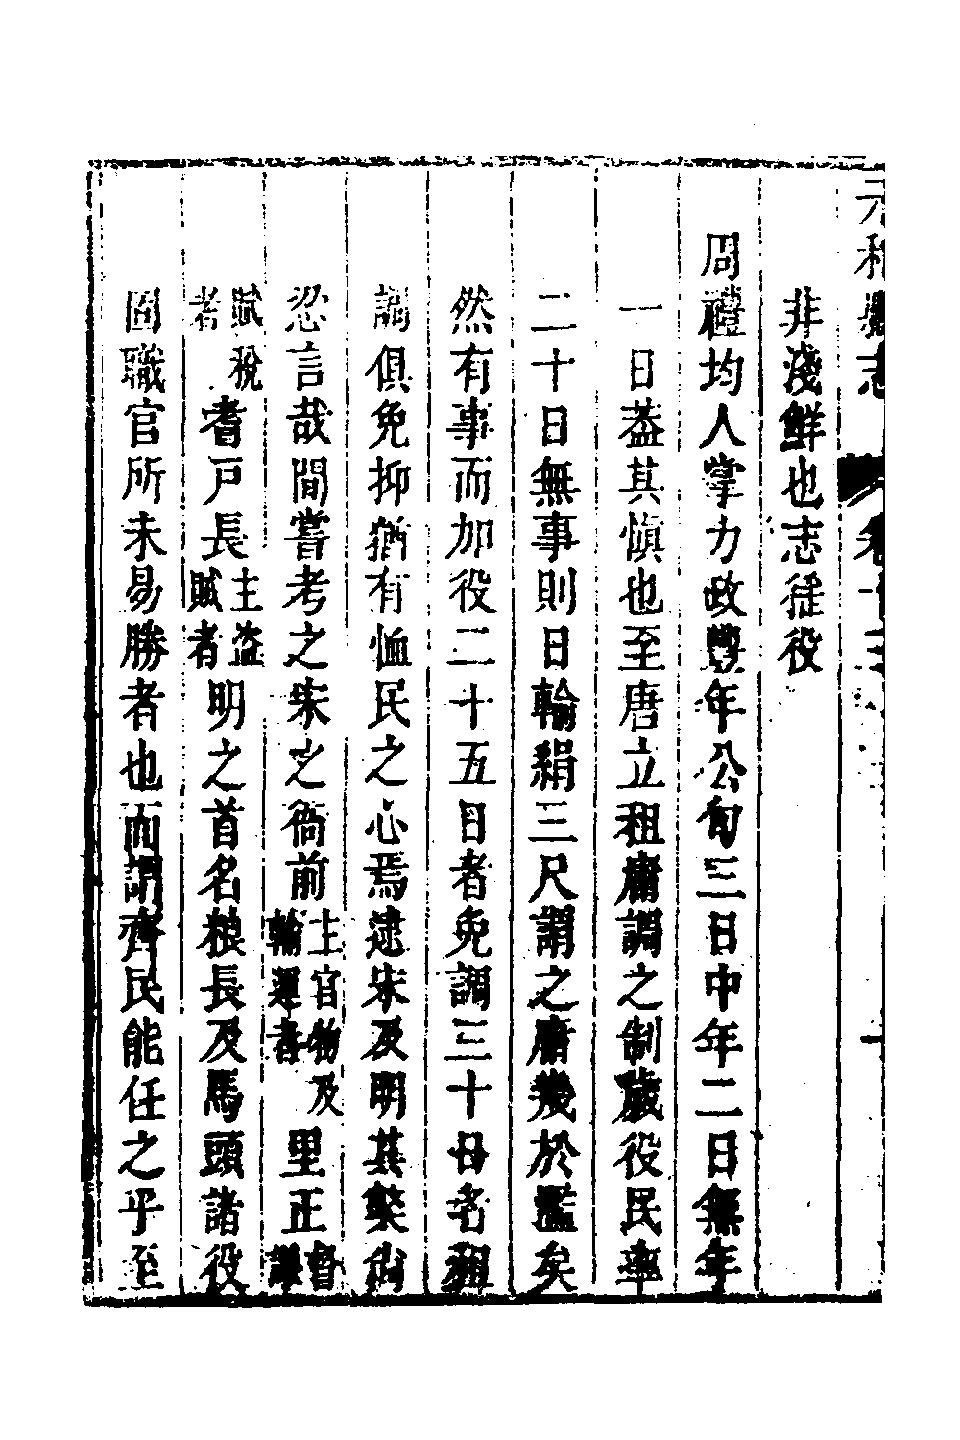 非淺鮮也志徭役
周禮均人掌力政豐年公旬三日中年二日無年
一日葢其慎也至唐立租庸調之制歲役民率
二十日無事則日輸絹三尺謂之庸幾於濫矣
然有事而加役二十五日者免調三十日者租
調俱免抑猶有恤民之心焉逮宋及明其獘尚
忍言哉間嘗考之宋之衙前主官物及輸運者里正督課
賦稅者耆戸長主盜賊者明之首名粮長及馬頭諸役
固職官所未易勝者也而謂齊民能任之乎至